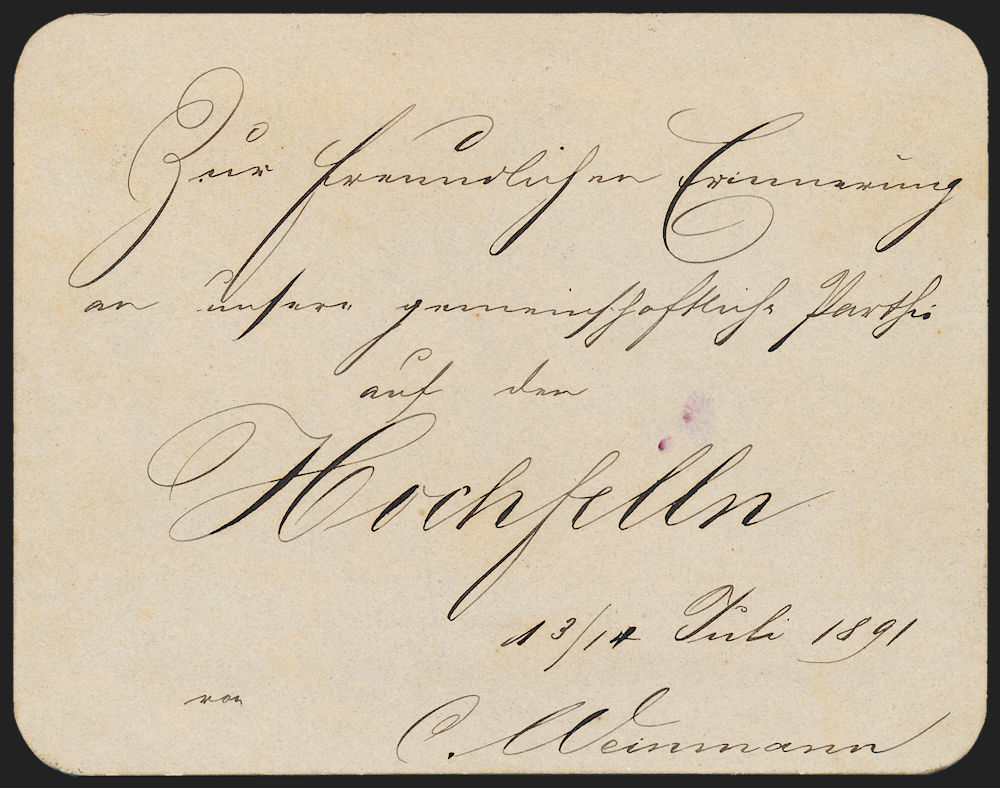 Zur freundlichen Erinnerung
an unsere gemeinschaftliche Parthie
auf den
Hochfelln
13/14 Juli 1891
von
C. Weinmann